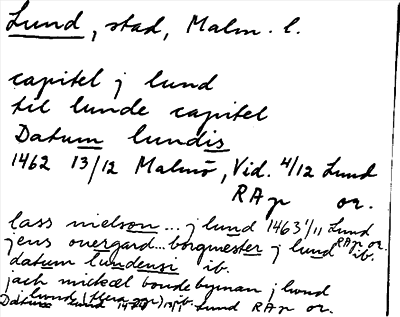 Lund, stad, Malm. l.
capitel j lund
til lunde capitel
Datum lundis
1462 13/12 Malmö, Vid. 4/12 Lund
RAp or.
lass nielson ... j lund 1463 1/11 Lund
RAp or.
jens ouergard ... borgmester j lund ib.
datum lundensi ib.
jach mickæl bonde byman j lund
lund (flera ggr) ib.
Datum Lund RAp or.